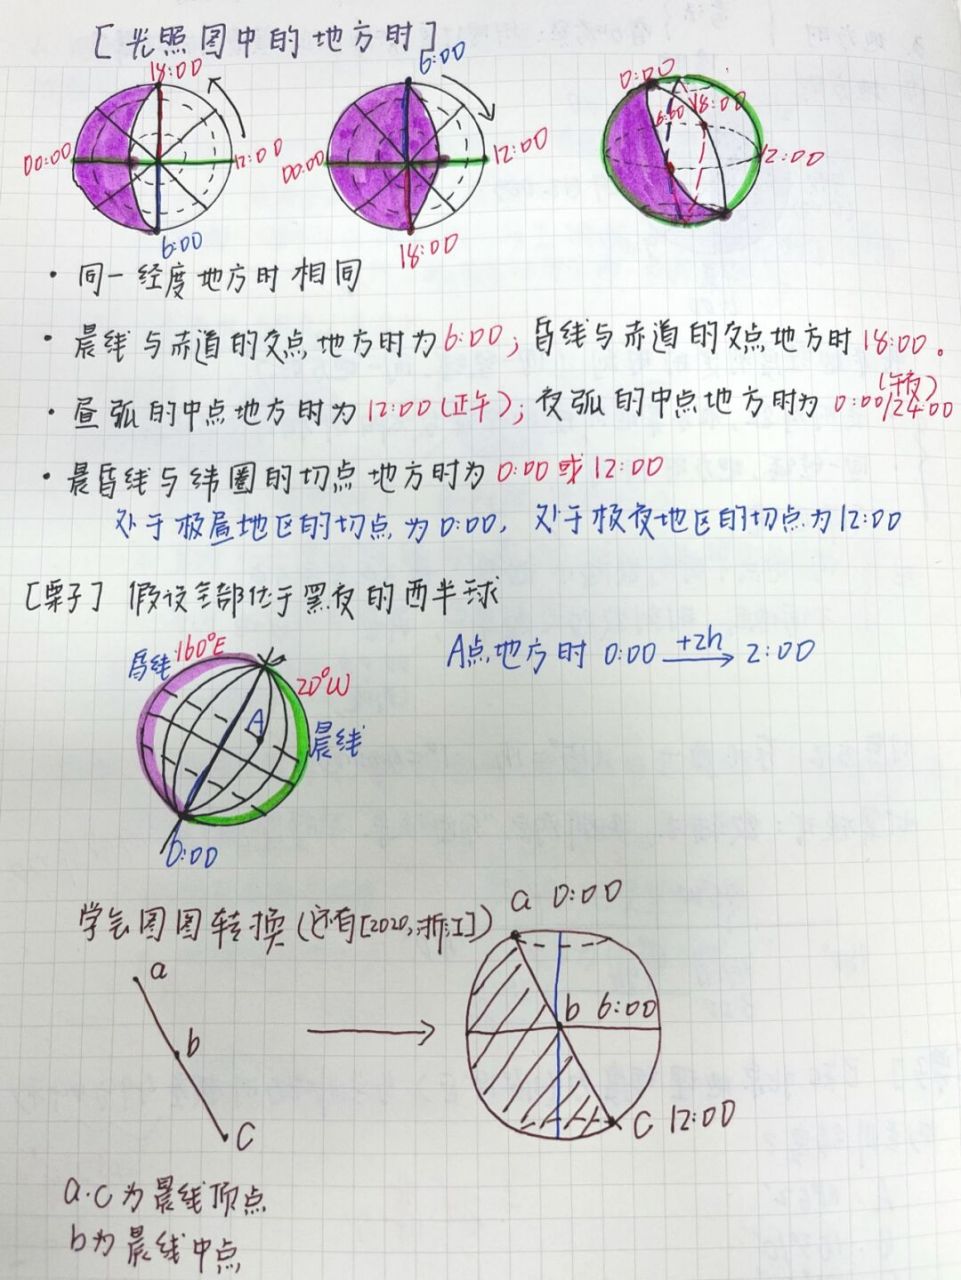 [光照图中的地方时]
18:00 6:00 0:00 18:00
6:00
00:00 12:00 00:00 12:00 12:00
6:00 18:00
· 同一经度地方时相同
· 晨线与赤道的交点地方时为6:00；昏线与赤道的交点地方时18:00。
· 昼弧的中点地方时为12:00(正午)；夜弧的中点地方时为0:00/24:00(午夜)
· 晨昏线与纬圈的切点地方时为0:00或12:00
处于极昼地区的切点为0:00，处于极夜地区的切点为12:00
[栗子] 假设全部位于黑夜的西半球
昏线 160°E
20°W
A
晨线
0:00
A点地方时 0:00 +2h 2:00
学会图图转换(还有[2020,浙江])
a
b
c
a 0:00
b 6:00
c 12:00
a.c为晨线顶点
b为晨线中点